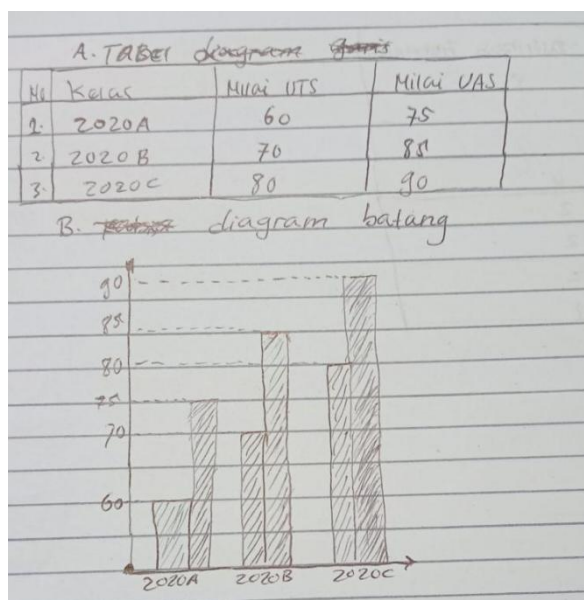 A. TABEl diagram garis
No Kelas Nilai UTS Nilai UAS
1. 2020A 60 75
2 2020B 70 85
3. 2020C 80 90
B. diagram batang
90
85
80
75
70
60
2020A 2020B 2020C